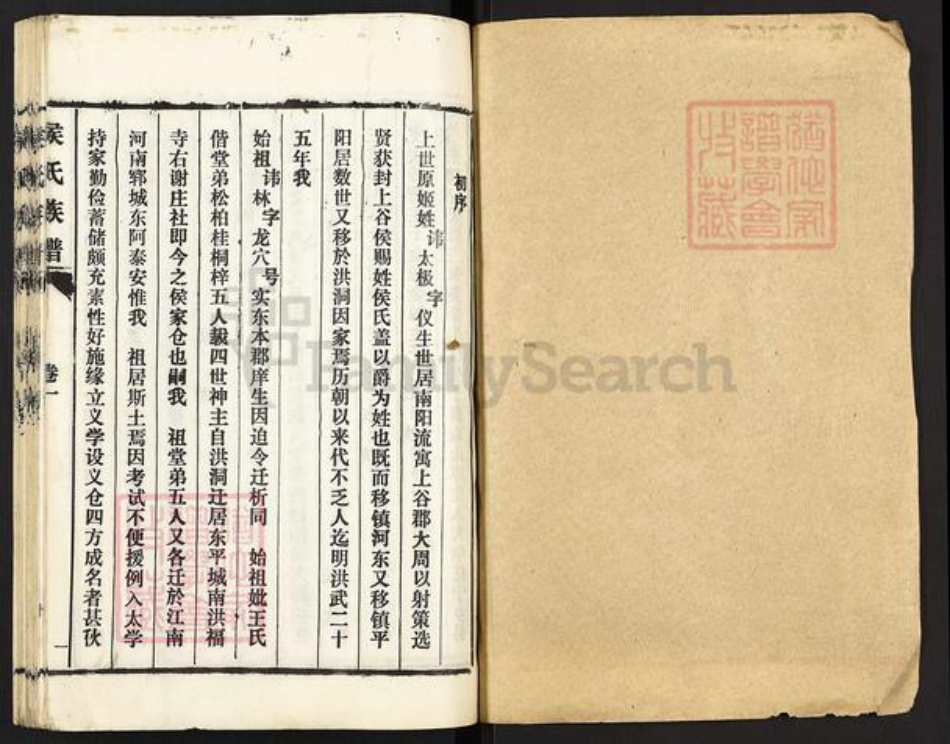 初序
上世原姬姓讳太极字仪生世居南阳流寓上谷郡大周以射策选
贤获封上谷侯赐姓侯氏盖以爵为姓也既而移镇河东又移镇平
阳居数世又移於洪洞因家焉历朝以来代不乏人迄明洪武二十
五年我
始祖讳林字龙穴号实东本郡庠生因迫令迁析同 始祖妣王氏
偕堂弟松柏桂桐梓五人载四世神主自洪洞迁居东平城南洪福
寺右谢庄社即今之侯家仓也嗣我 祖堂弟五人又各迁於江南
河南郓城东阿泰安惟我 祖居斯土焉因考试不便援例入太学
持家勤俭蓄储颇充素性好施缘立义学设义仓四方成名者甚伙
侯氏族谱
卷一
一
FamilySearch